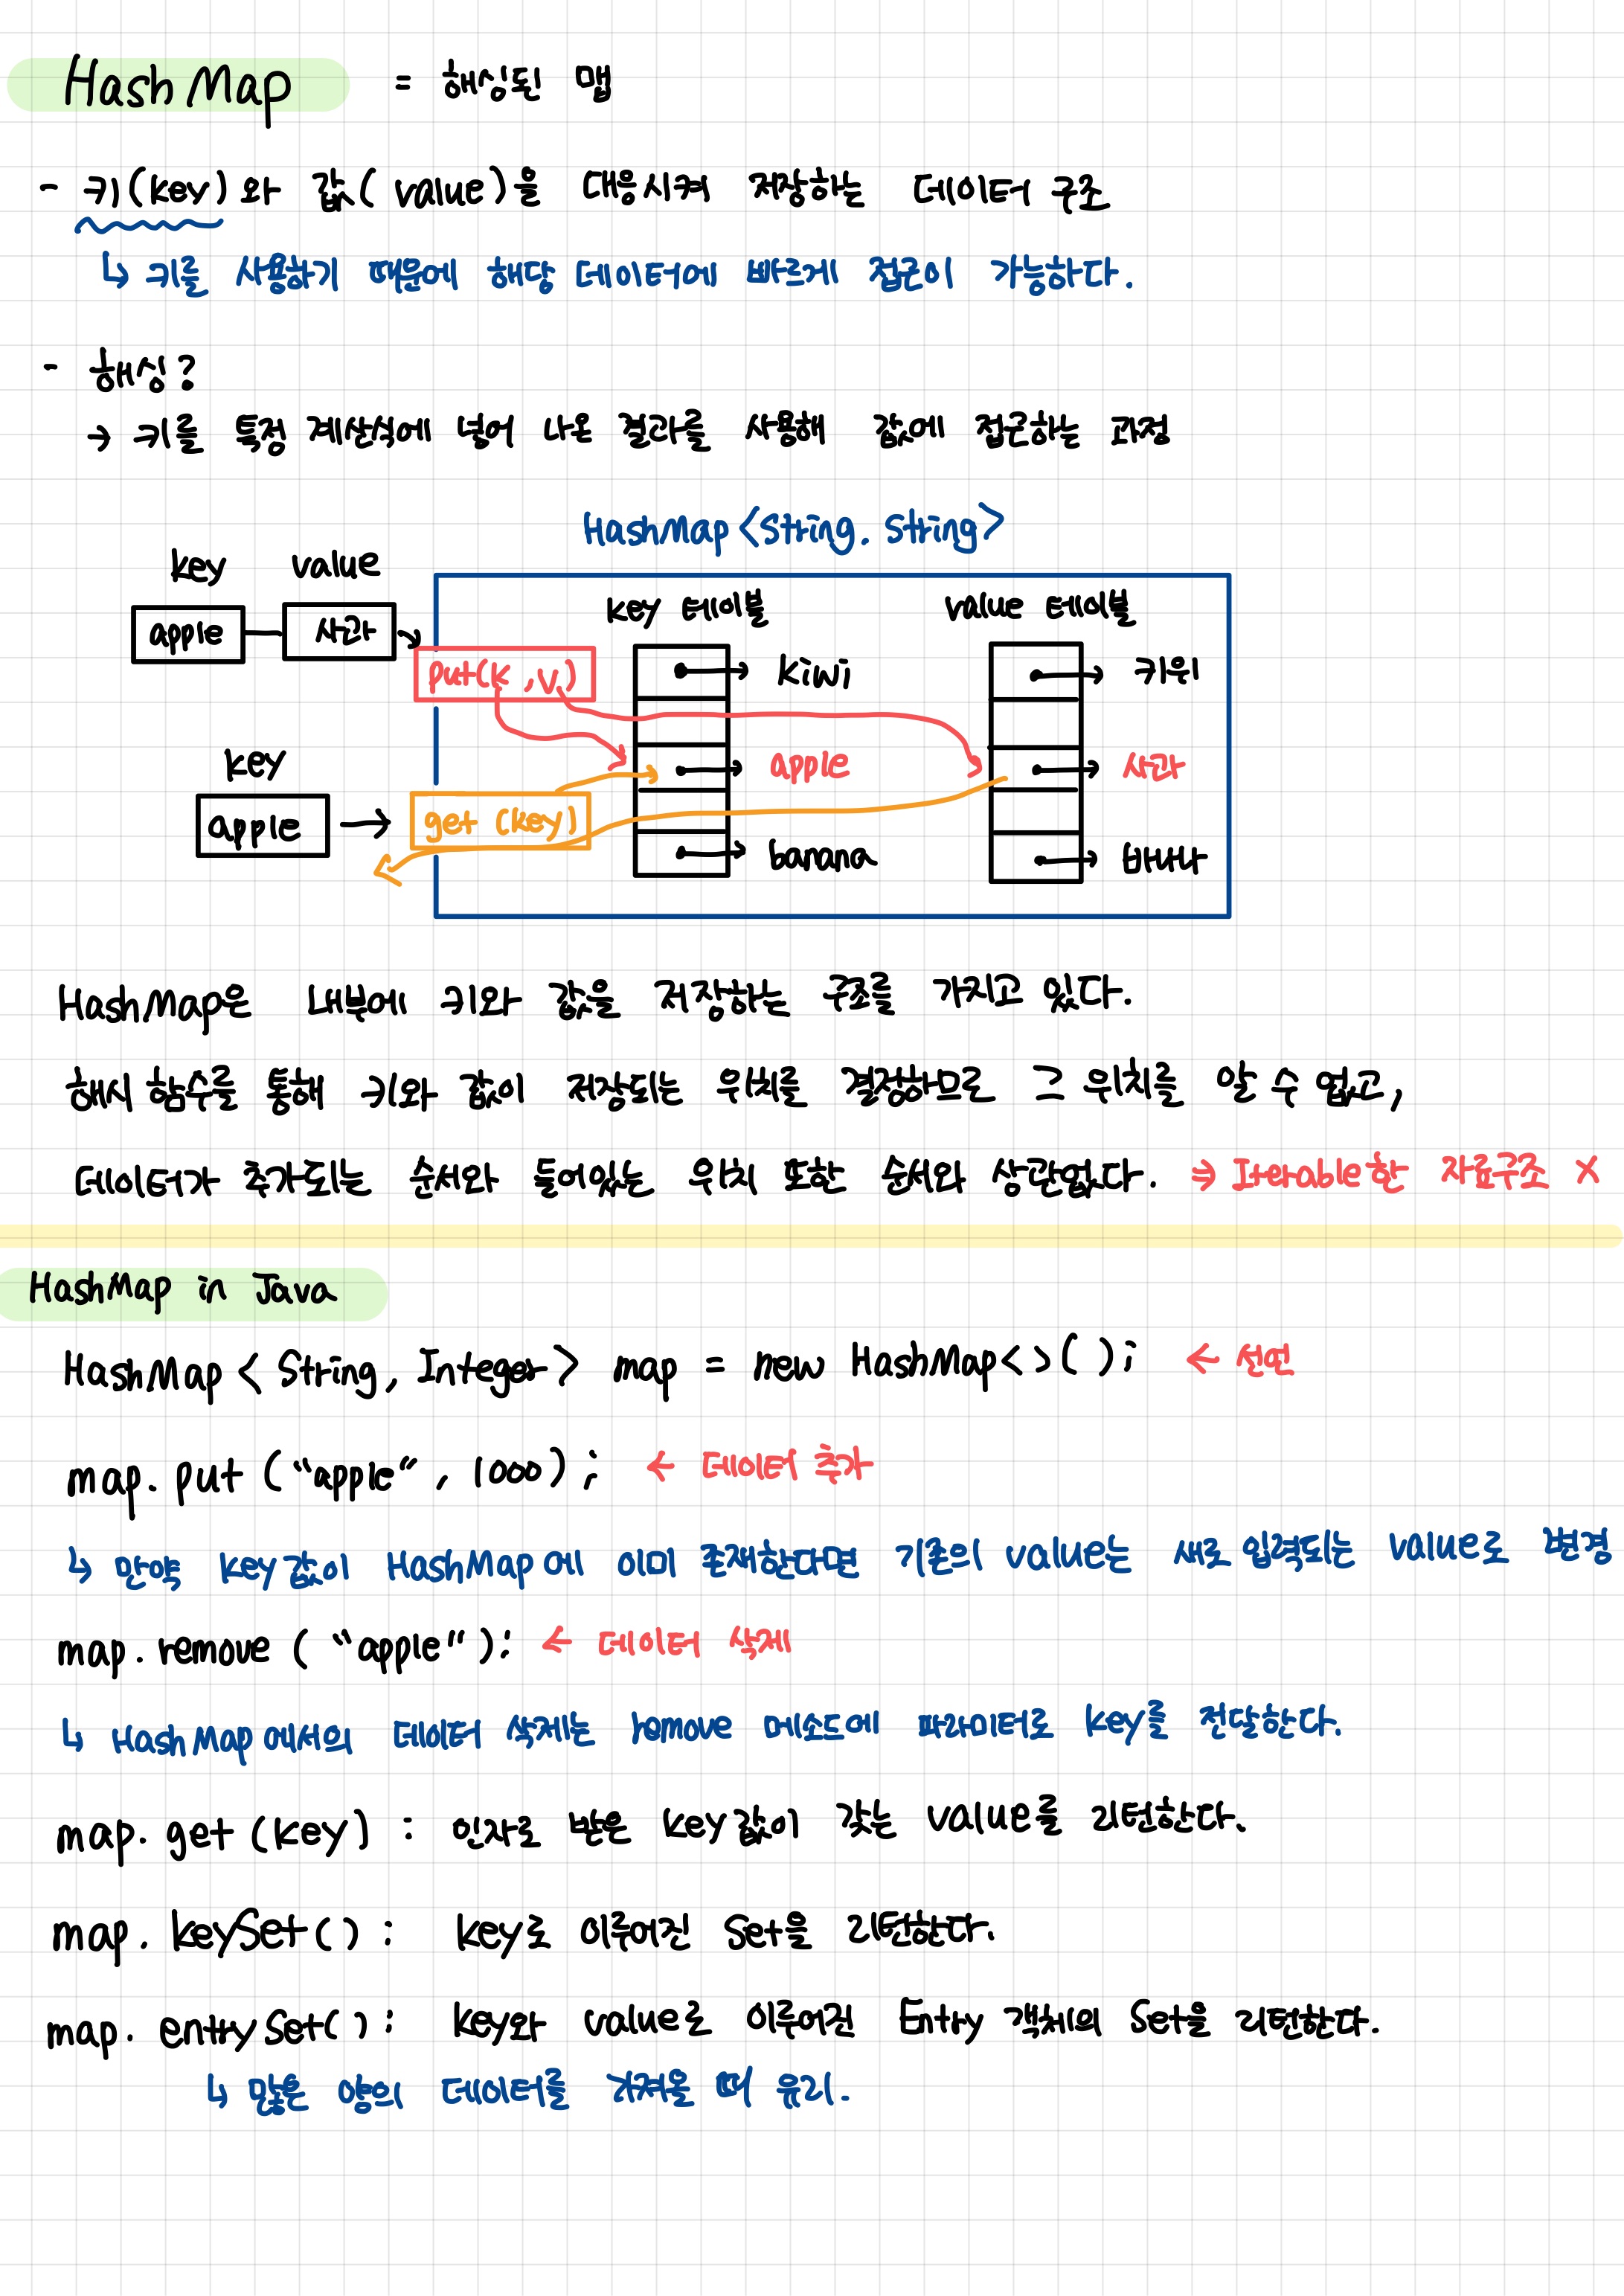 HashMap = 해싱된 맵
- 키(key)와 값(value)을 대응시켜 저장하는 데이터 구조
↳ 키를 사용하기 때문에 해당 데이터에 빠르게 접근이 가능하다.
- 해싱?
→ 키를 특정 계산식에 넣어 나온 결과를 사용해 값에 접근하는 과정
HashMap<String. String>
key value
apple 사과
key 테이블 value 테이블
put(K,V)
kiwi 키위
key
apple 사과
apple
get (key)
banana 바나나
HashMap은 내부에 키와 값을 저장하는 구조를 가지고 있다.
해시 함수를 통해 키와 값이 저장되는 위치를 결정하므로 그 위치를 알 수 없고,
데이터가 추가되는 순서와 들어있는 위치 또한 순서와 상관없다. ⇒ Iterable한 자료구조 X
HashMap in Java
HashMap < String, Integer> map = new HashMap<>(); ← 선언
map. put ("apple", 1000); ← 데이터 추가
↳ 만약 key값이 HashMap에 이미 존재한다면 기존의 value는 새로 입력되는 value로 변경
map. remove ( "apple"): ← 데이터 삭제
↳ HashMap에서의 데이터 삭제는 remove 메소드에 파라미터로 key를 전달한다.
map. get (key) : 인자로 받은 key값이 갖는 value를 리턴한다.
map. keySet() : key로 이루어진 Set을 리턴한다.
map. entrySet() : key와 value로 이루어진 Entry 객체의 Set을 리턴한다.
↳ 많은 양의 데이터를 가져올 때 유리.